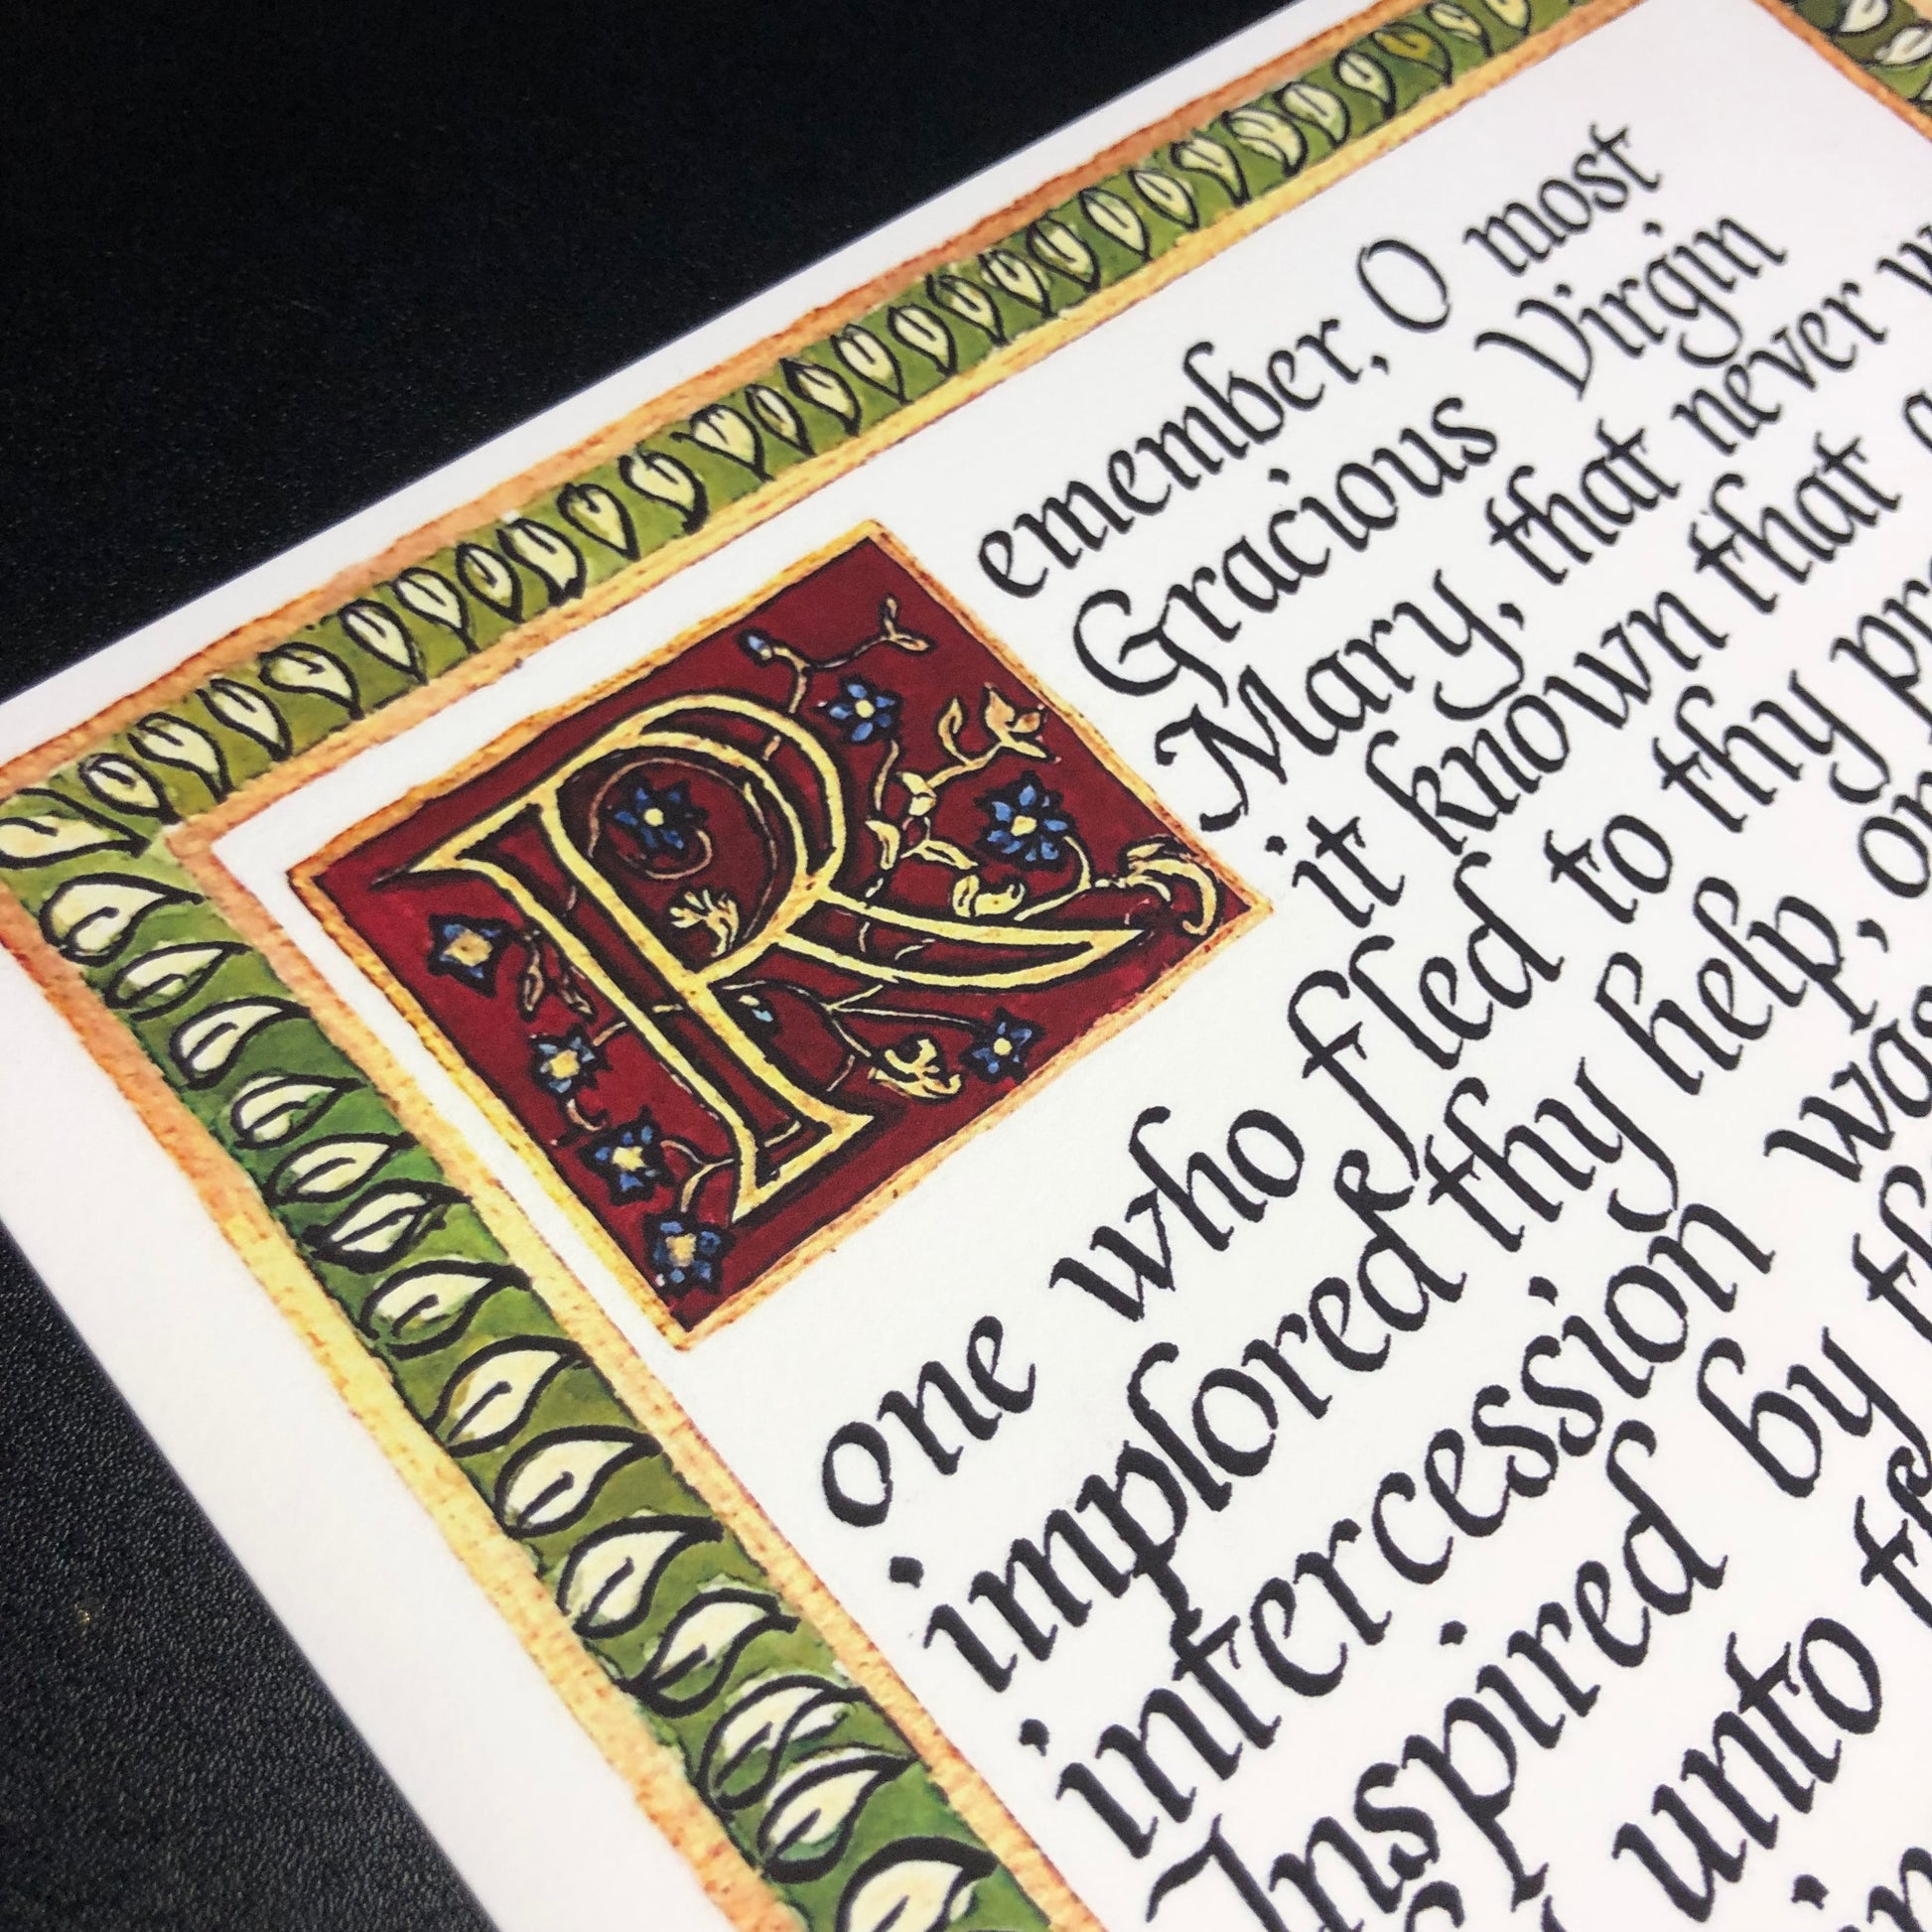 Remember, O most
Gracious Virgin
Mary, that never w
it known that a
one who fled to thy pr
implored thy help, or
intercession was
Inspired by th
unto th